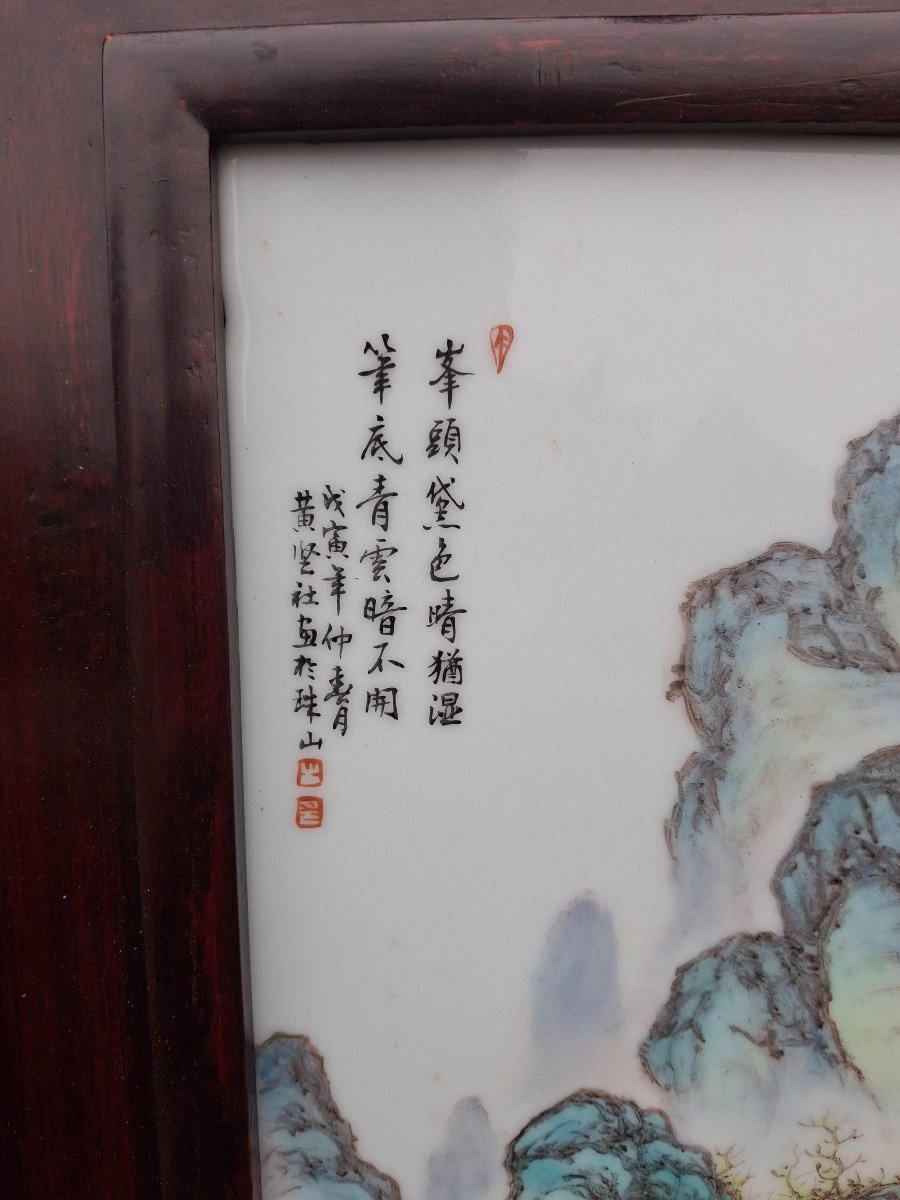 峯頭黛色晴猶湿
筆底青雲暗不開
戊寅年仲春月
黄坚社畫於珠山